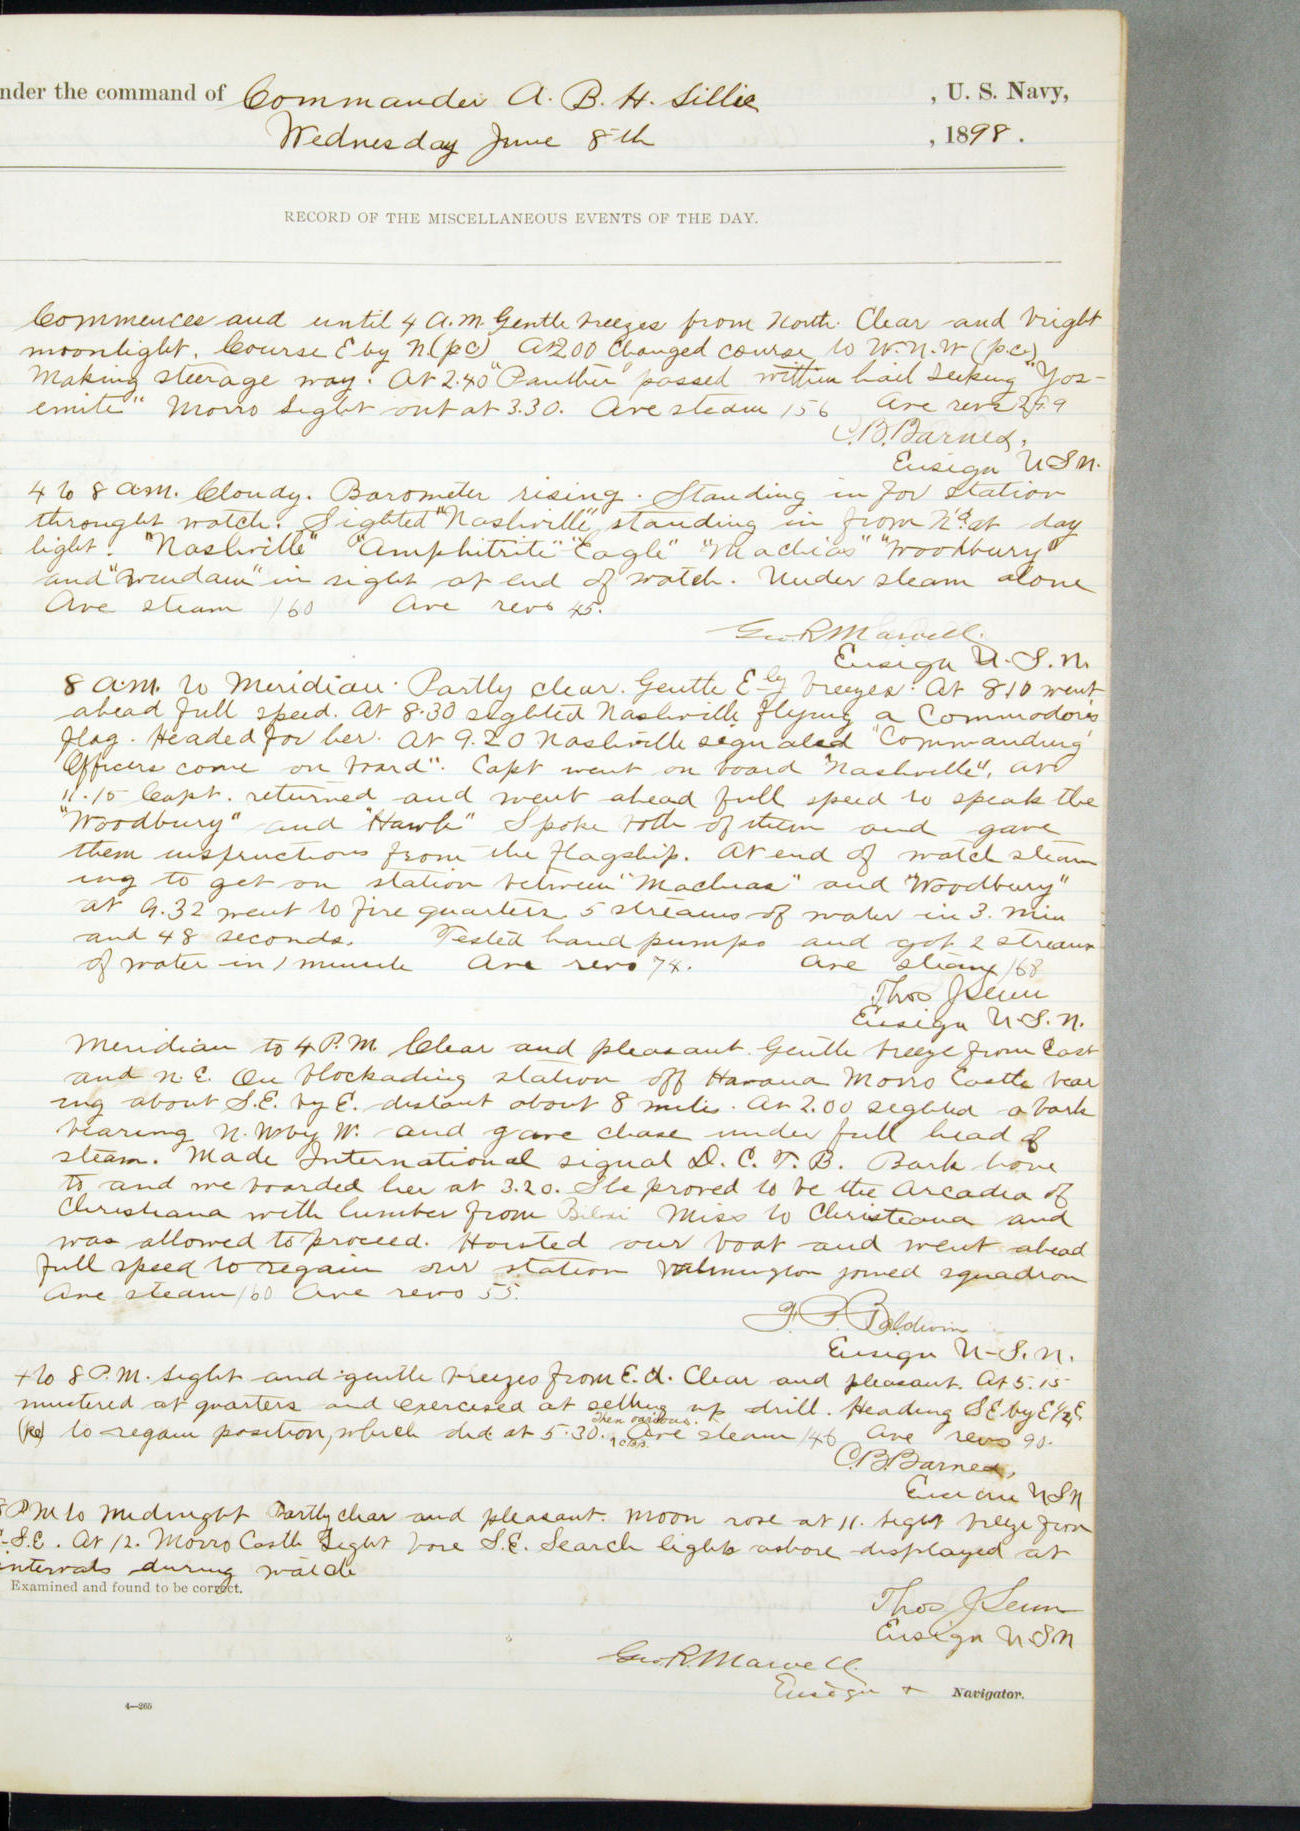 nder the command of Commander A. B. H. Lillie , U. S. Navy,
Wednesday June 8th , 1898.
RECORD OF THE MISCELLANEOUS EVENTS OF THE DAY.
Commences and until 4 A.M. Gentle breezes from North. Clear and bright
moonlight. Course E by N (p.c) At 2.00 changed course to W.N.W (p.c.)
Making steerage way. At 2.40 "Panther" passed within hail seeking "Yos-
emite" Morro Light out at 3.30. Ave steam 156 Ave revs 29.9
C.B. Barnes,
Ensign U.S.N.
4 to 8 a.m. Cloudy. Barometer rising. Standing in for station
throught watch. Sighted "Nashville" standing in from N'd at day
light. "Nashville" "Amphitrite" "Eagle" "Machias" "Woodbury"
and "Windam" in sight at end of watch. Under steam alone
Ave steam 160 Ave revs 45.
Geo. R Marvell.
Ensign U.S.N.
8 A.M. to Meridian. Partly clear. Gentle E'ly breezes. At 810 went
ahead full speed. At 8.30 sighted Nashville flying a Commodore's
flag. Headed for her. At 9.20 Nashville signaled "Commanding
Officers come on board". Capt went on board "Nashville", at
11.15 Capt. returned and went ahead full speed to speak the
"Woodbury" and "Hawk" Spoke both of them and gave
them instructions from the flagship. At end of watch steam
ing to get on station between "Machias" and "Woodbury"
at 9.32 went to fire quarters 5 streams of water in 3. min
and 48 seconds. Tested hand pumps and got 2 stream
of water in 1 minute Ave revs 74. Ave steam 168
Thos J Senn
Ensign U.S.N.
Meridian to 4 P.M. Clear and pleasant. Gentle breeze from East
and N.E. On blockading station off Havana Morro Castle bear
ing about S.E. by E. distant about 8 miles. At 2.00 sighted a bark
bearing N.W by W. and gave chase under full head of
steam. Made International signal D. C. T. B. Bark hove
to and we boarded her at 3.20. She proved to be the Arcadia of
Christiana with lumber from Biloxi Miss to Christiana and
was allowed to proceed. Hoisted our boat and went ahead
full speed to regain our station Wilmington joined squadron
Ave steam 160 Ave revs 55.
F. P. Baldwin
Ensign U.S.N.
4 to 8 P.M. Light and gentle breezes from E.d. Clear and pleasant. At 5.15
mustered at quarters and exercised at setting up drill. Heading SE by E 1/2 E
then various
(pc) to regain position, which did at 5.30. Ave steam 146 Ave revs 90.
C.B. Barnes,
Ensign USN
8 PM to Midnight Partly clear and pleasant. Moon rose at 11. Light breeze from
E.S.E. At 12. Morro Castle Light bore S.E. Search lights ashore displayed at
intervals during watch
Examined and found to be correct.
Thos J Senn
Ensign U.S.N
Geo. R. Marvell.
Ensign + Navigator.
4—265